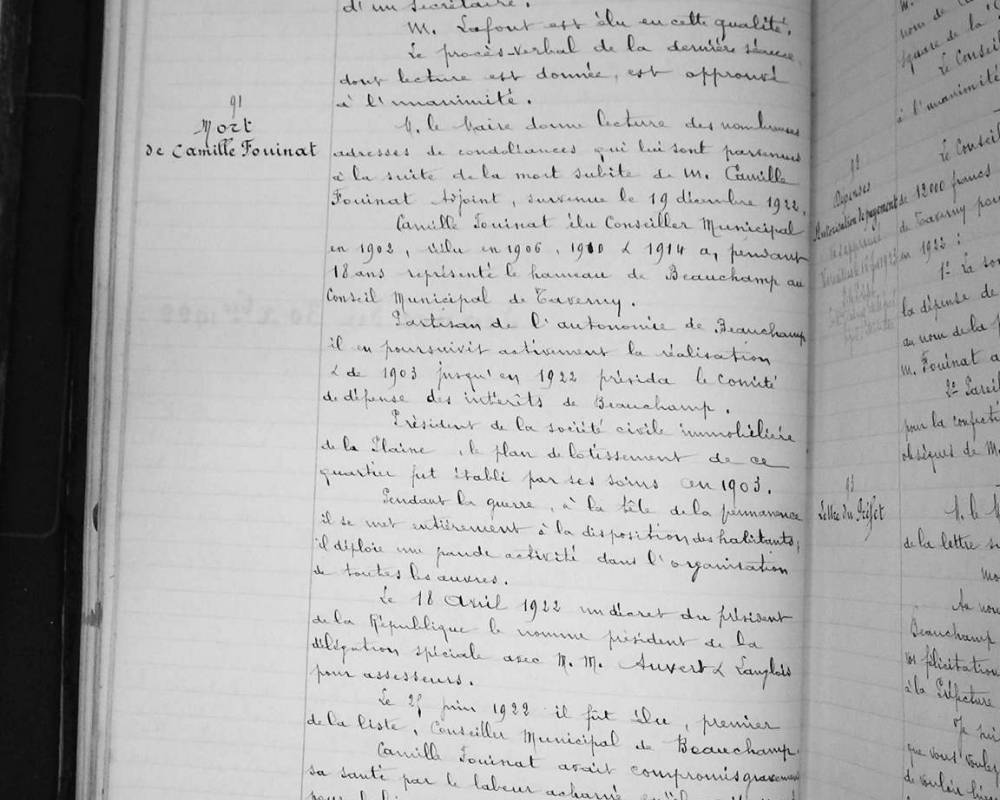 d'un secrétaire.
M. Lafont est élu en cette qualité.
Le procès-verbal de la dernière séance,
dont lecture est donnée, est approuvé
à l'unanimité.
91
Mort
de Camille Fouinat
M. le Maire donne lecture des nombreuses
adresses de condoléances qui lui sont parvenues
à la suite de la mort subite de M. Camille
Fouinat Adjoint, survenue le 19 décembre 1922.
Camille Fouinat élu Conseiller Municipal
en 1902, réélu en 1906, 1910 & 1914 a, pendant
18 ans représenté le hameau de Beauchamp au
Conseil Municipal de Taverny.
Partisan de l'autonomie de Beauchamp
il en poursuivit activement la réalisation
& de 1903 jusqu'en 1922 présida le Comité
de défense des intérêts de Beauchamp.
Président de la société civile immobilière
de la Plaine, le plan de lotissement de ce
quartier fut établi par ses soins en 1903.
Pendant la guerre, à la tête de la permanence
il se met entièrement à la disposition des habitants;
il déploie une grande activité dans l'organisation
de toutes les œuvres.
Le 18 Avril 1922 un décret du président
de la République le nomme président de la
délégation spéciale avec M. M. Auvert & Langlois
pour assesseurs.
Le juin 1922 il fût élu, premier
de la liste, Conseiller Municipal de Beauchamp.
Camille Fouinat avait compromis gravement
sa santé par le labeur acharné
nom de
square de la
Le Conseil
à l'unanimité
Dépenses
Autorisation de payement
Le Conseil
de 12000 francs
de Taverny pour
en 1922 :
1° La som
la dépense de
au nom de la
M. Fouinat a
2° Pareil
pour la confecti
obsèques de M.
Lettre du Préfet
M. le M
de la lettre
Beauchamp
vos félicitation
à la Préfecture
Je suis
que vous voulez
de vouloir bien